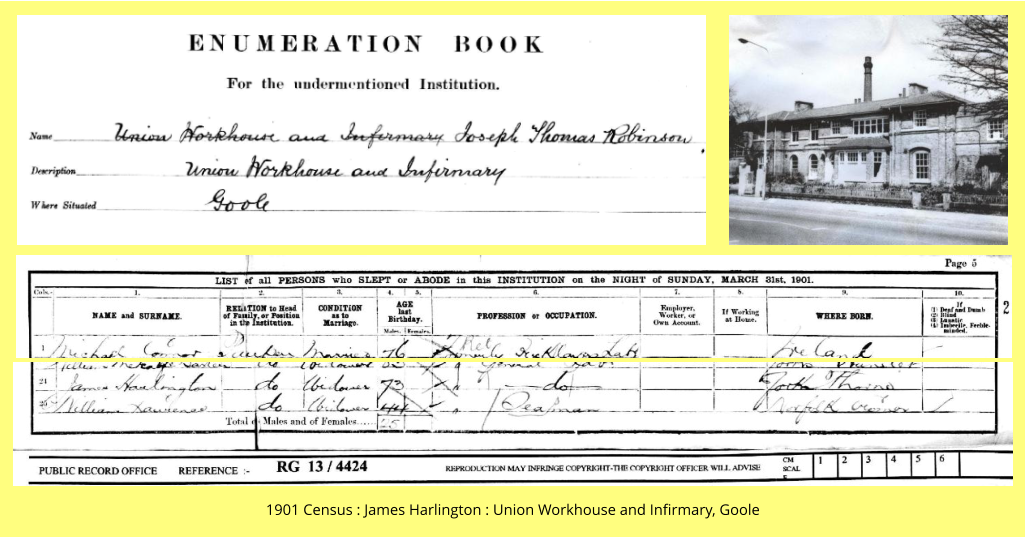 ENUMERATION BOOK
For the undermentioned Institution.
Name Union Workhouse and Infirmary Joseph Thomas Robinson
Description Union Workhouse and Infirmary
Where Situated Goole
Page 5
LIST of all PERSONS who SLEPT or ABODE in this INSTITUTION on the NIGHT of SUNDAY, MARCH 31st, 1901.
Cols.- 1. 2. 3. 4. 5. 6. 7. 8. 9. 10.
NAME and SURNAME. RELATION to Head of Family, or Position in the Institution. CONDITION as to Marriage. AGE last Birthday. PROFESSION or OCCUPATION. Employer, Worker, or Own Account. If Working at Home. WHERE BORN. If (1) Deaf and Dumb (2) Blind (3) Lunatic (4) Imbecile, Feeble-minded.
Males. Females.
2
1 Michael Connor 76 Ireland
General
24 James Harlington do Widower 73 do
25 William Lawrence do Widower 44 Seaman Norfolk Cromer
Total of Males and of Females...... 25
PUBLIC RECORD OFFICE REFERENCE :- RG 13 / 4424 REPRODUCTION MAY INFRINGE COPYRIGHT-THE COPYRIGHT OFFICER WILL ADVISE CM SCAL 1 2 3 4 5 6
1901 Census : James Harlington : Union Workhouse and Infirmary, Goole